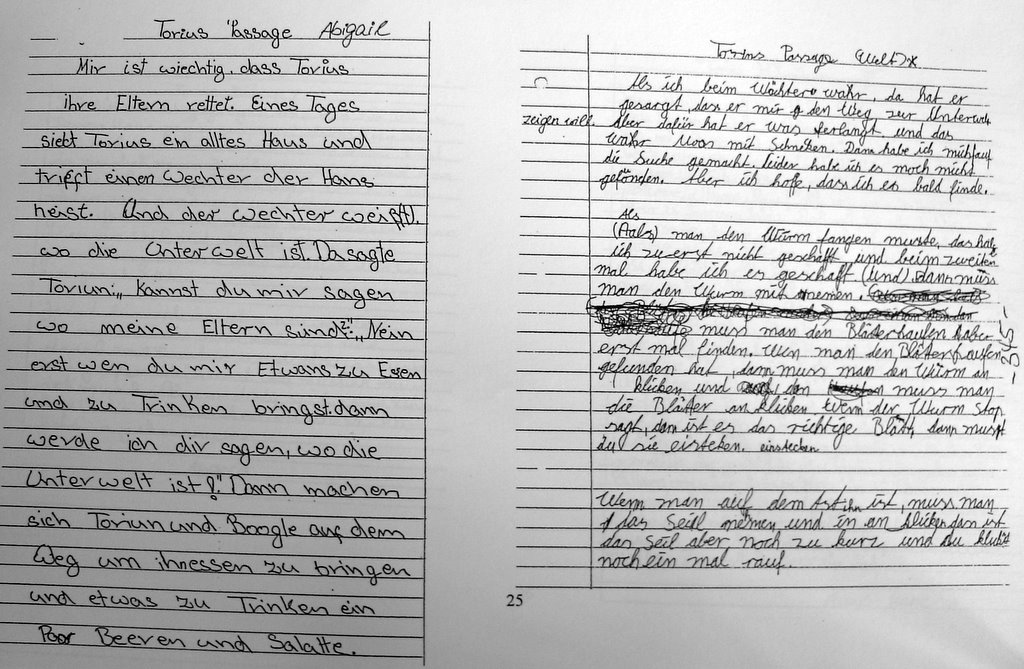 Torius Passage Abigail
Mir ist wiechtig, dass Torius
ihre Eltern rettet. Eines Tages
sieht Torius ein alltes Haus und
trifft einen Wechter der Hans
heist. Und der Wechter weis(st).
wo die Unterwelt ist. Da sagte
Torium: „Kannst du mir sagen
wo meine Eltern sind?" „Nein
erst wen du mir Etwans zu Esen
und zu Trinken bringst. dann
werde ich dir sagen, wo die
Unterwelt ist!" Dann machen
sich Toriun und Boogle auf dem
Weg um ihn essen zu bringen
und etwas zu Trinken ein
Paar Beeren und Salatte.
Torins Passage (Welt)*
Als ich beim Wächter wahr, da hat er
gesargt, dass er mir den Weg zur Unterwelt
zeigen will. Aber dafür hat er was ferlangt und das
wahr was mit Schneken. Dann habe ich mich auf
die Suche gemacht, leider habe ich es noch nicht
gefünden. Aber ich hoffe, dass ich es bald finde.
Als
(Aals) man den Würm fangen muste, das hab
ich zu erst nicht geschaft und beim zweiten
mal habe ich es geschaft (Und) dann müs
man den Wurm mit nemen.
muss man den Bläterhaufen haber
erst mal finden. Wen man den Bläterhaufen
gefunden hat, dann muss man den Würm an
klicken und dan muss man
die Blätter an klicken Wenn der Wurm Stop
sagt, dan ist es das richtige Blatt, dann musst
du sie eisteken. einstecken
- 345 -
Wenn man auf dem Ast ihn ist, muss man
das Seil nemen und in an klicken dan ist
das Seil aber noch zu kurz und du klickst
noch ein mal rauf.
25